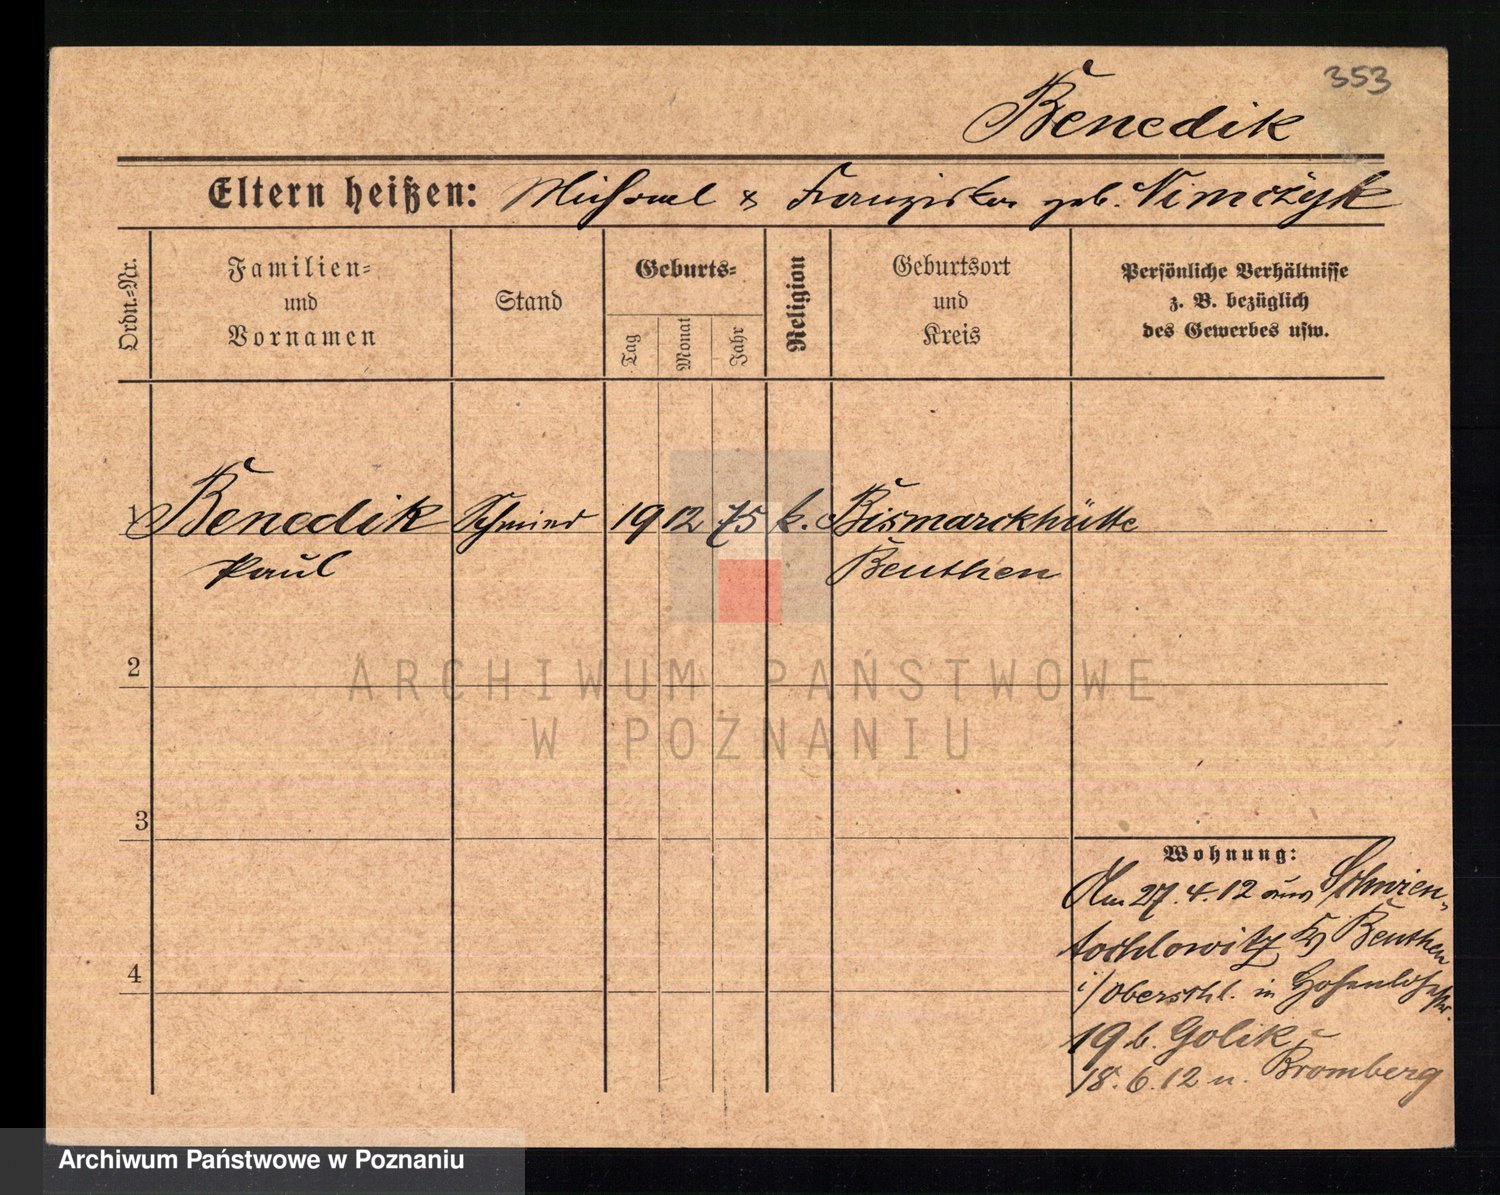 353
Benedik
Eltern heißen: Michael & Franziska geb. Nimczyk
Ordn.-Nr.
Familien-
und
Vornamen
Stand
Geburts-
Tag
Monat
Jahr
Religion
Geburtsort
und
Kreis
Persönliche Verhältnisse
z. B. bezüglich
des Gewerbes usw.
1 Benedik Schmied 19 12 75 k. Bismarckhütte
Paul Beuthen
2
ARCHIWUM PAŃSTWOWE
W POZNANIU
3
Wohnung:
Am 27.4.12 aus Schwien-
tochlowitz Kr Beuthen
i/Oberschl. in Hohenlohestr.
4
19 b. Golik
18.6.12 n. Bromberg
Archiwum Państwowe w Poznaniu